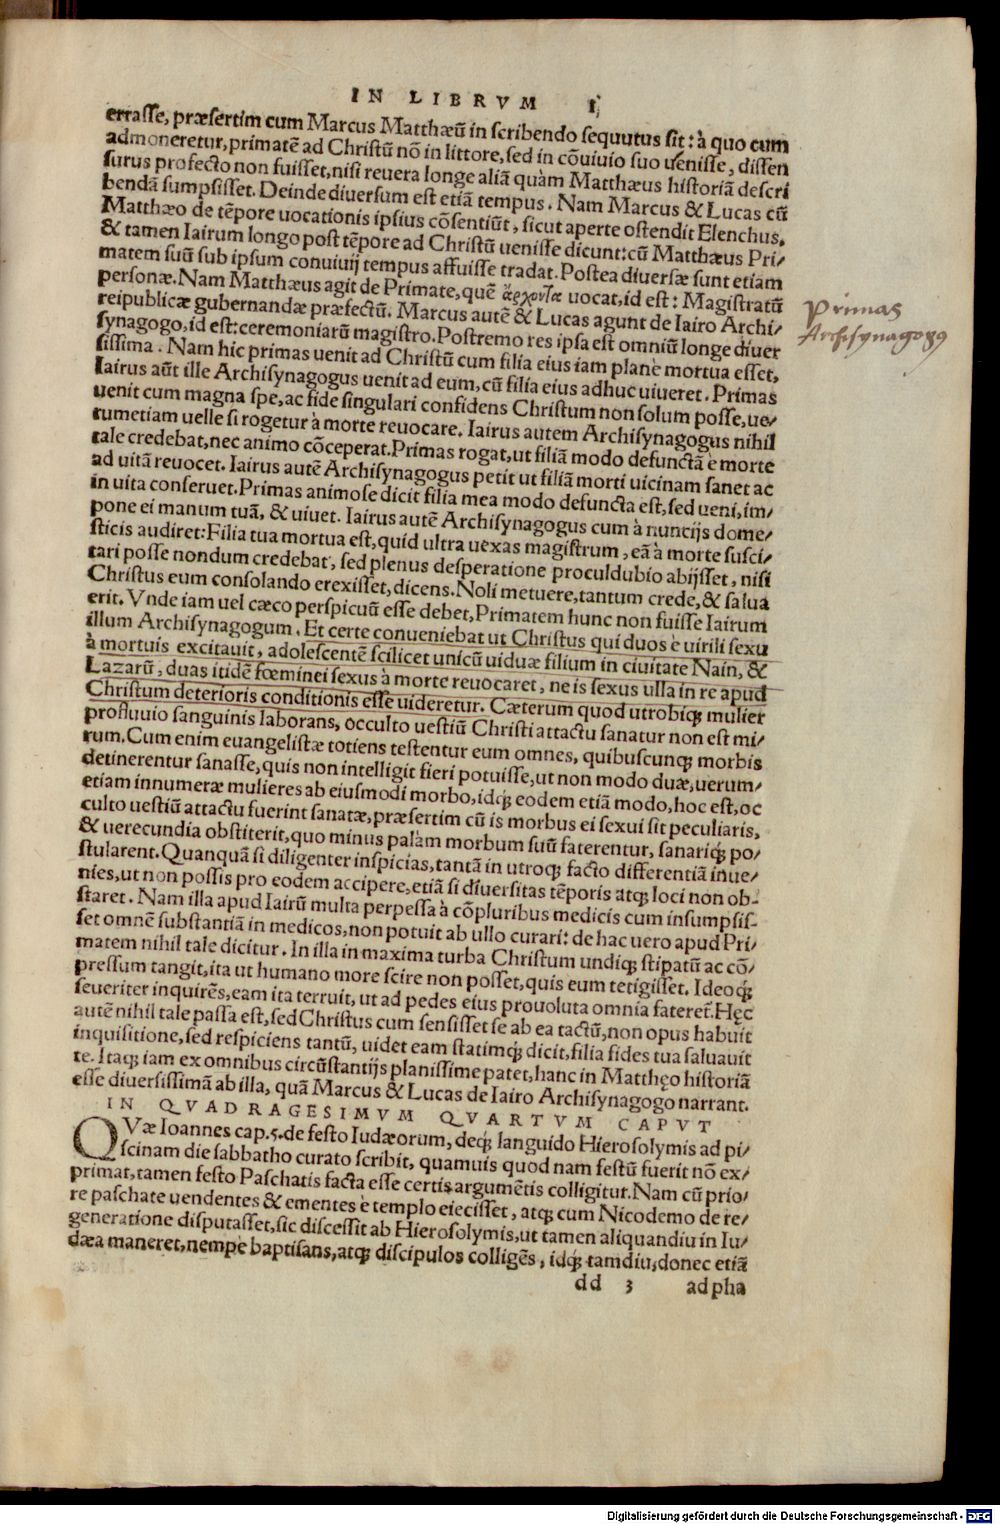 IN LIBRVM I,
errasse, præsertim cum Marcus Matthæũ in scribendo sequutus sit: à quo cum
admoneretur, primatẽ ad Christũ nõ in littore, sed in cõuiuio suo uenisse, dissen
surus profecto non fuisset, nisi reuera longe aliã quàm Matthæus historiã descri
bendã sumpsisset. Deinde diuersum est etiã tempus. Nam Marcus & Lucas cũ
Matthæo de tẽpore uocationis ipsius cõsentiũt, sicut aperte ostendit Elenchus,
& tamen Iairum longo post tẽpore ad Christũ uenisse dicunt: cũ Matthæus Pri/
matem suũ sub ipsum conuiuij tempus affuisse tradat. Postea diuersæ sunt etiam
personæ. Nam Matthæus agit de Primate, quẽ ἄρχοντα uocat, id est: Magistratũ
reipublicæ gubernandæ præfectũ. Marcus autẽ & Lucas agunt de Iairo Archi/
synagogo, id est: ceremoniarũ magistro. Postremo res ipsa est omniũ longe diuer
sissima. Nam hic primas uenit ad Christũ cum filia eius iam planè mortua esset,
Iairus aũt ille Archisynagogus uenit ad eum, cũ filia eius adhuc uiueret. Primas
uenit cum magna spe, ac fide singulari confidens Christum non solum posse, ue/
rumetiam uelle si rogetur à morte reuocare. Iairus autem Archisynagogus nihil
tale credebat, nec animo cõceperat. Primas rogat, ut filiã modo defunctã è morte
ad uitã reuocet. Iairus autẽ Archisynagogus petit ut filiã morti uicinam sanet ac
in uita conseruet. Primas animose dicit filia mea modo defuncta est, sed ueni, im/
pone ei manum tuã, & uiuet. Iairus autẽ Archisynagogus cum à nuncijs dome/
sticis audiret: Filia tua mortua est, quid ultra uexas magistrum, eã à morte susci/
tari posse nondum credebat, sed plenus desperatione proculdubio abijsset, nisi
Christus eum consolando erexisset, dicens. Noli metuere, tantum crede, & salua
erit. Vnde iam uel cæco perspicuũ esse debet, Primatem hunc non fuisse Iairum
illum Archisynagogum. Et certe conueniebat ut Christus qui duos è uirili sexu
à mortuis excitauit, adolescentẽ scilicet unicũ uiduæ filium in ciuitate Nain, &
Lazarũ, duas itidẽ fœminei sexus à morte reuocaret, ne is sexus ulla in re apud
Christum deterioris conditionis esse uideretur. Cæterum quod utrobiq; mulier
profluuio sanguinis laborans, occulto uestiũ Christi attactu sanatur non est mi/
rum. Cum enim euangelistæ totiens testentur eum omnes, quibuscunq; morbis
detinerentur sanasse, quis non intelligit fieri potuisse, ut non modo duæ, uerum/
etiam innumeræ mulieres ab eiusmodi morbo, idq; eodem etiã modo, hoc est, oc
culto uestiũ attactu fuerint sanatæ, præsertim cũ is morbus ei sexui sit peculiaris,
& uerecundia obstiterit, quo minus palàm morbum suũ faterentur, sanariq; po/
stularent. Quanquã si diligenter inspicias, tantã in utroq; facto differentiã inue/
nies, ut non possis pro eodem accipere, etiã si diuersitas tẽporis atq; loci non ob-
staret. Nam illa apud Iairũ multa perpessa à cõpluribus medicis cum insumpsis-
set omnẽ substantiã in medicos, non potuit ab ullo curari: de hac uero apud Pri/
matem nihil tale dicitur. In illa in maxima turba Christum undiq; stipatũ ac cõ/
pressum tangit, ita ut humano more scire non posset, quis eum tetigisset. Ideoq;
seueriter inquirẽs, eam ita terruit, ut ad pedes eius prouoluta omnia fateret̃. Hęc
autẽ nihil tale passa est, sed Christus cum sensisset se ab ea tactũ, non opus habuit
inquisitione, sed respiciens tantũ, uidet eam statimq; dicit, filia fides tua saluauit
te. Itaq; iam ex omnibus circũstantijs planissime patet, hanc in Matthęo historiã
esse diuersissimã ab illa, quã Marcus & Lucas de Iairo Archisynagogo narrant.
IN QVADRAGESIMVM QVARTVM CAPVT
QVæ Ioannes cap. 5. de festo Iudæorum, deq; languido Hierosolymis ad pi/
scinam die sabbatho curato scribit, quamuis quod nam festũ fuerit nõ ex/
primat, tamen festo Paschatis facta esse certis argumẽtis colligitur. Nam cũ prio/
re paschate uendentes & ementes è templo eiecisset, atq; cum Nicodemo de re/
generatione disputasset, sic discessit ab Hierosolymis, ut tamen aliquandiu in Iu/
dæa maneret, nempe baptisans, atq; discipulos colligẽs, idq; tamdiu, donec etiã
dd 3 ad pha
Primas
Archisynagog9
Digitalisierung gefördert durch die Deutsche Forschungsgemeinschaft - DFG